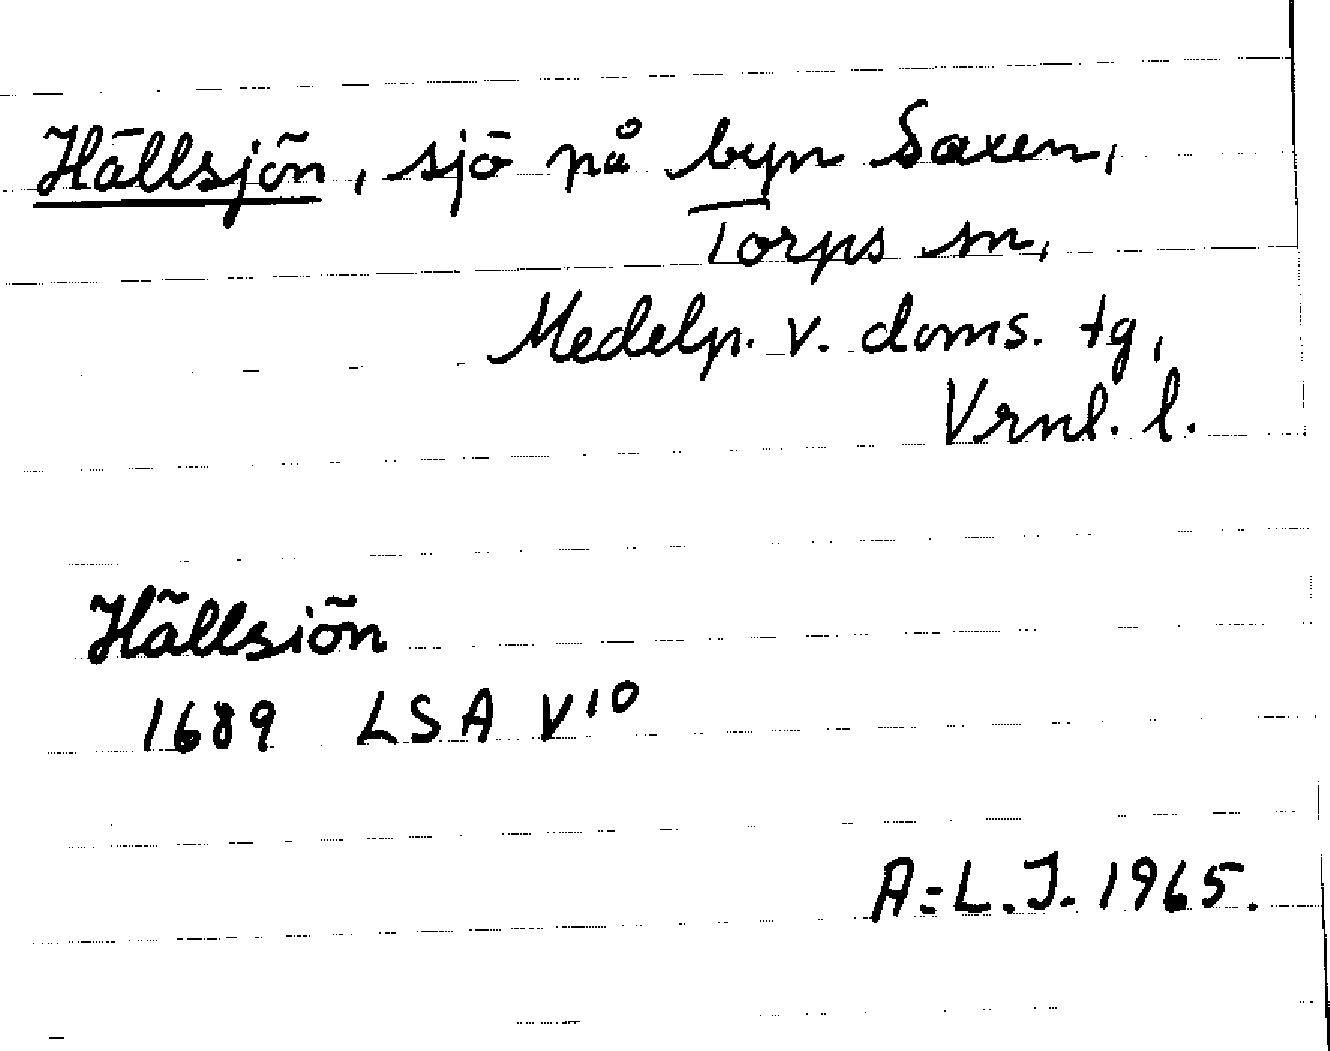 Hällsjön, sjö på byn Saxen,
Torps sn,
Medelp. v. doms. tg,
Vrnl. l.
Hällsiön
1689 LSA V¹⁰
A-L.J. 1965.